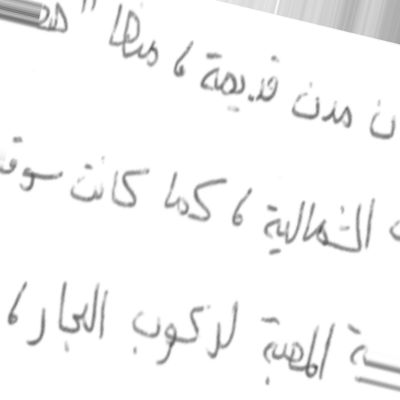 ن مدن قديمة ، منها "
الشمالية ، كما كانت سوق
المحبة لركوب البحار ،